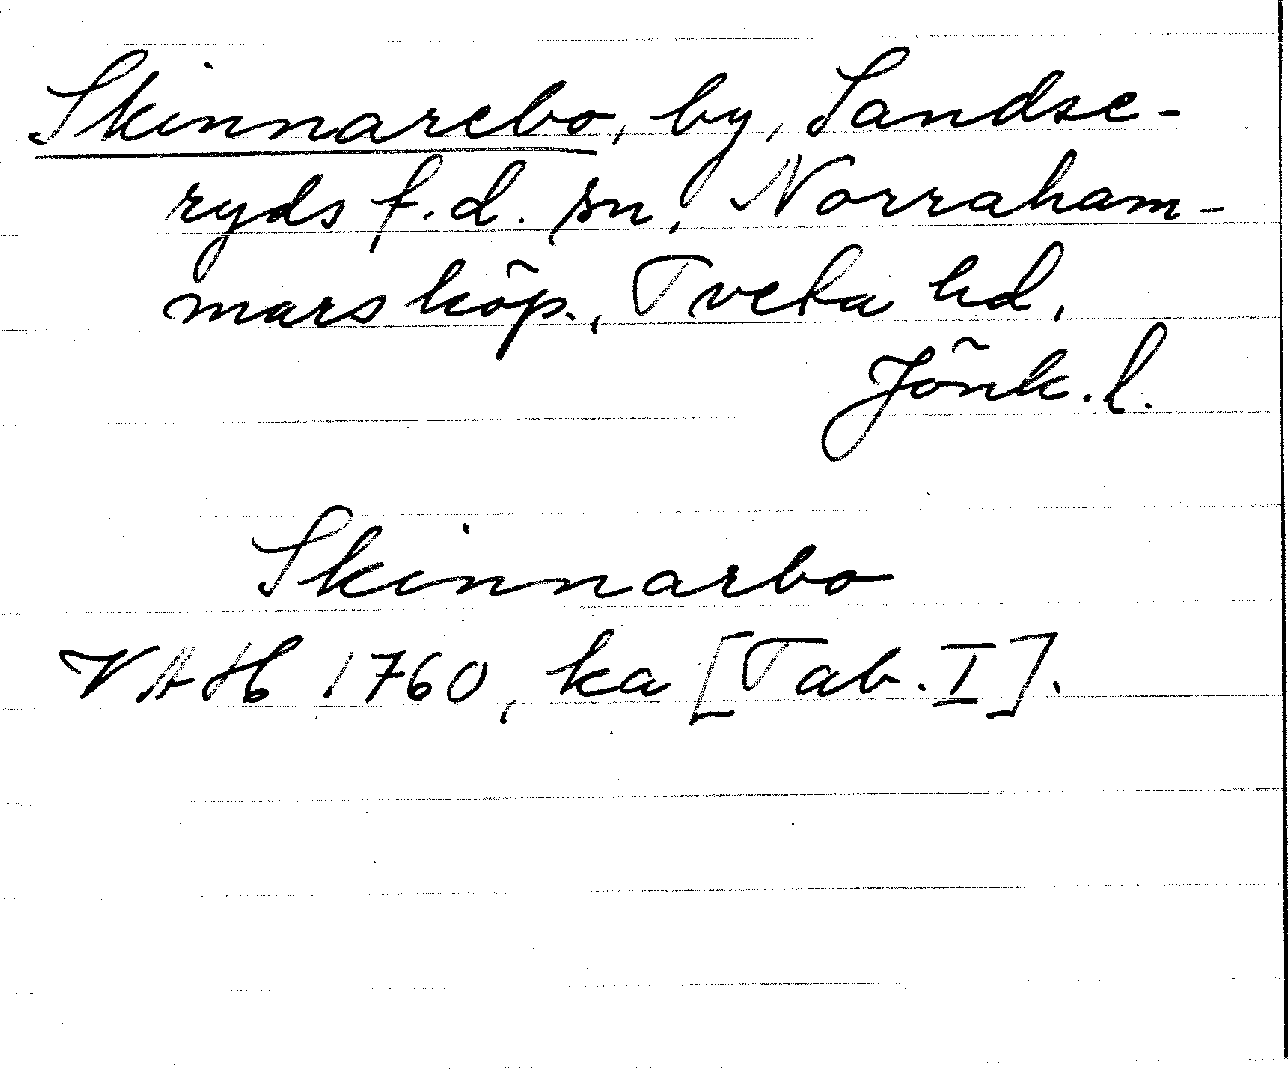 Skinnarebo, by, Sandse-
ryds f.d. sn, Norraham-
mars köp., Tveta hd,
Jönk.l.
Skinnarbo
VAH 1760, ka [Tab. I].